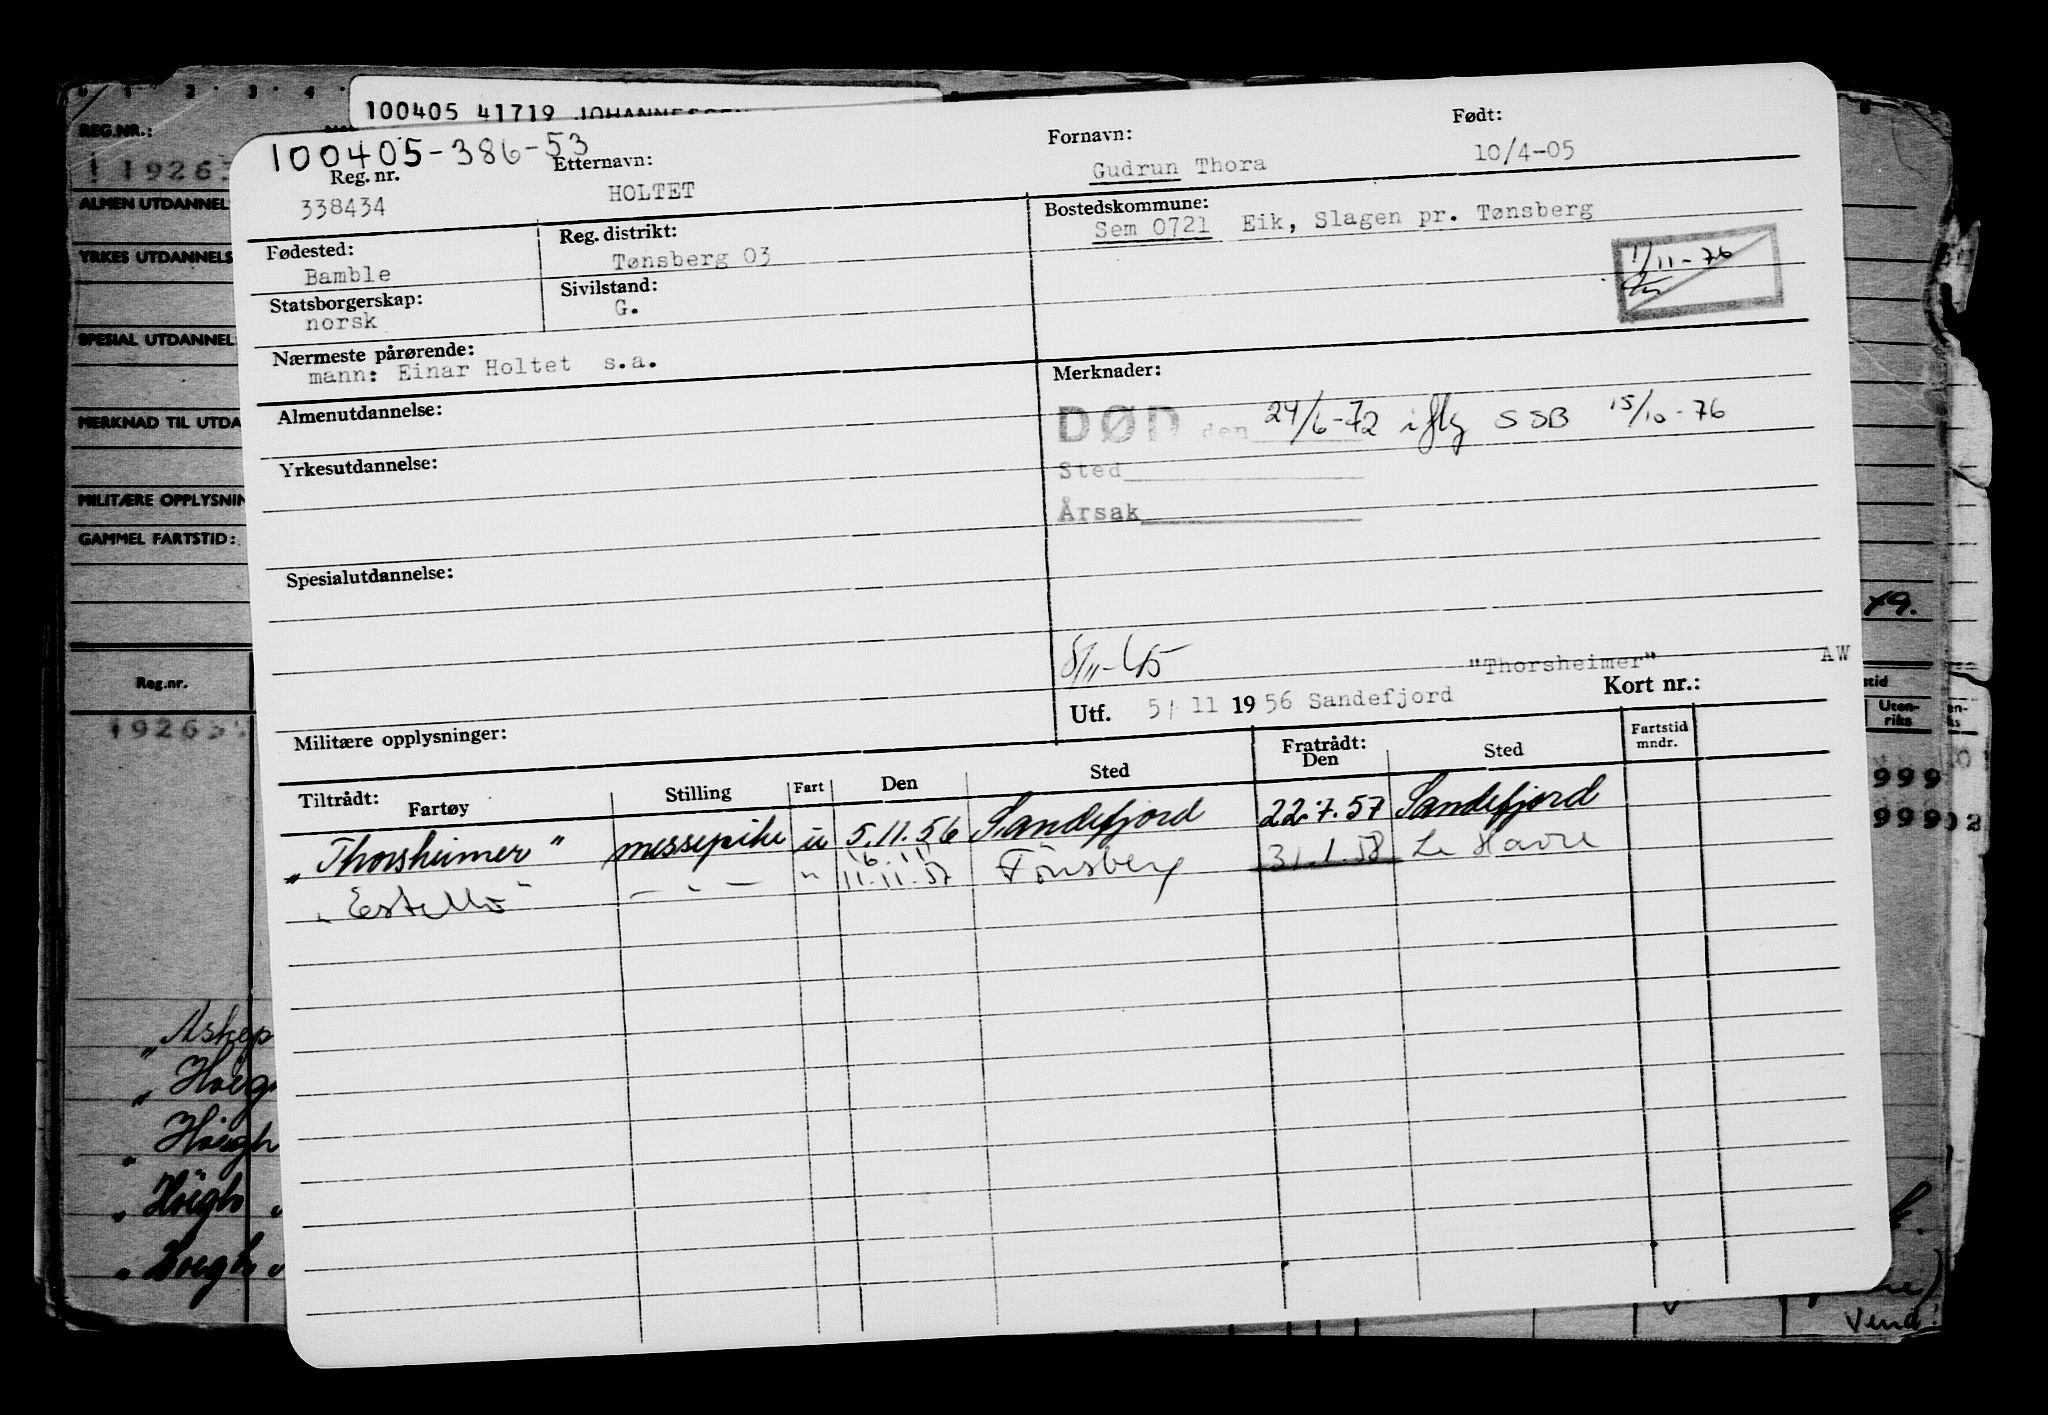 100405 41719 JOHANNESSEN
REG.NR.:
1926
ALMEN UTDANNEL
YRKES UTDANNELS
SPESIAL UTDANNEL
MERKNAD TIL UTDA
MILITÆRE OPPLYSNIN
GAMMEL FARTSTID:
Reg.nr.
1926
"Askep
"Höegh
"Höegh
"Höegh "
"Hoegh "
100405-386-53
Reg. nr. Etternavn: Fornavn: Født:
338434 HOLTET Gudrun Thora 10/4-05
Fødested: Reg. distrikt: Bostedskommune:
Bamble Tønsberg 03 Sem 0721 Eik, Slagen pr. Tønsberg
Statsborgerskap: Sivilstand:
norsk G.
1/11-76
Nærmeste pårørende:
mann: Einar Holtet s.a.
Merknader:
Almenutdannelse:
DØD den 24/6-72 iflg SSB 15/10-76
Yrkesutdannelse:
Sted
Årsak
Spesialutdannelse:
"Thorsheimer" AW
Utf. 5/ 11 1956 Sandefjord Kort nr.:
Militære opplysninger:
Tiltrådt: Fartøy Stilling Fart Den Sted Fratrådt: Den Sted Fartstid mndr.
"Thorsheimer" messepike u 5.11.56 Sandefjord 22.7.57 Sandefjord
16.11
"Estello" — " — " 11.11.57 Tønsberg 31.1.58 Le Havre
49.
stid
Uten-
riks
999
999
02
Vend!